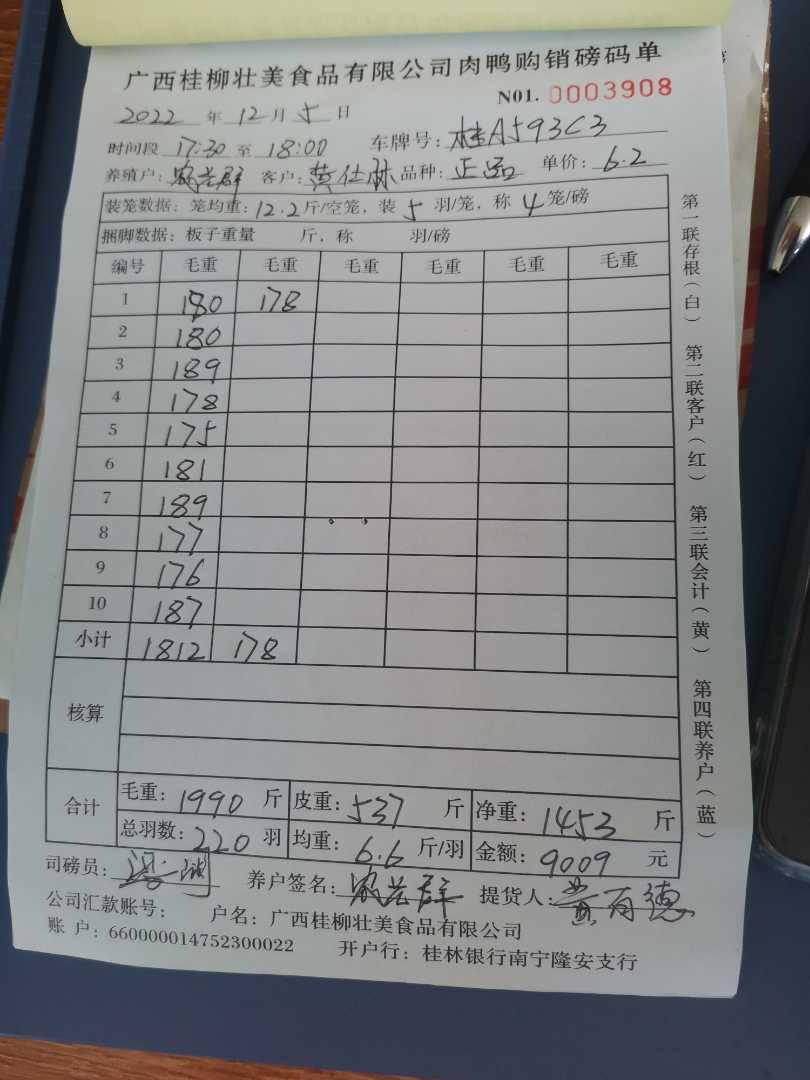 广西桂柳壮美食品有限公司肉鸭购销磅码单
N01. 0003908
2022 年 12 月 5 日
时间段 17:30 至 18:00 车牌号: 桂A593C3
养殖户: 客户: 黄仕脉 品种: 正品 单价: 6.2
装笼数据: 笼均重: 12.2 斤/空笼, 装 5 羽/笼, 称 4 笼/磅
捆脚数据: 板子重量 斤, 称 羽/磅
编号 毛重 毛重 毛重 毛重 毛重 毛重
1 180 178
2 180
3 189
4 178
5 175
6 181
7 189
8 177
9 176
10 187
小计 1812 178
核算
合计 毛重: 1990 斤 皮重: 537 斤 净重: 1453 斤
总羽数: 220 羽 均重: 6.6 斤/羽 金额: 9009 元
司磅员: 养户签名: 提货人: 黄有德
公司汇款账号: 户名: 广西桂柳壮美食品有限公司
账 户: 660000014752300022 开户行: 桂林银行南宁隆安支行
第一联存根(白) 第二联客户(红) 第三联会计(黄) 第四联养户(蓝)